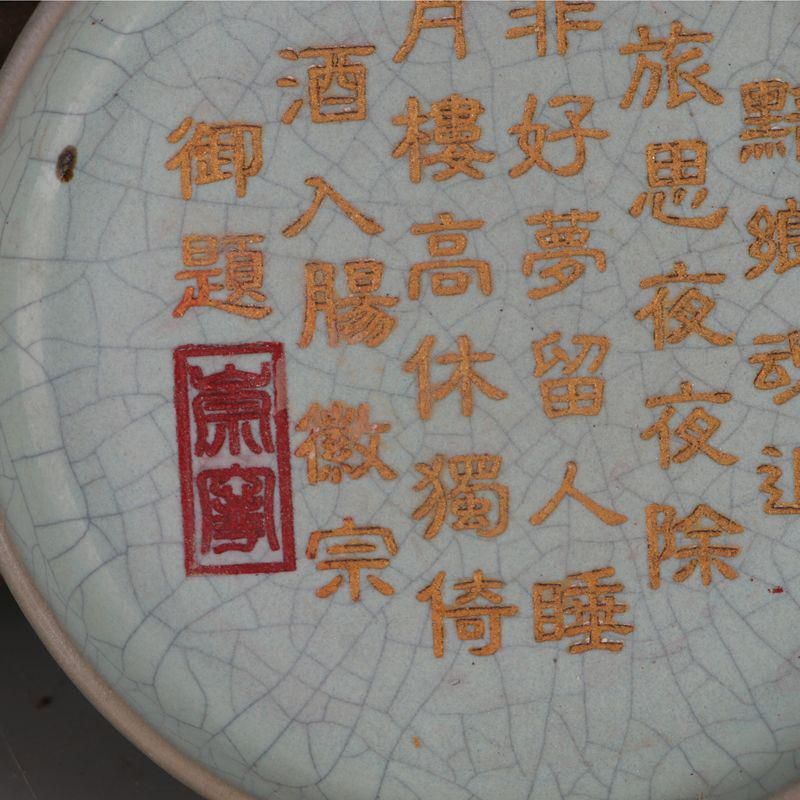 黯鄉魂追
旅思夜夜除
非好夢留人睡
月樓高休獨倚
酒入腸徽宗
御題
崇寧